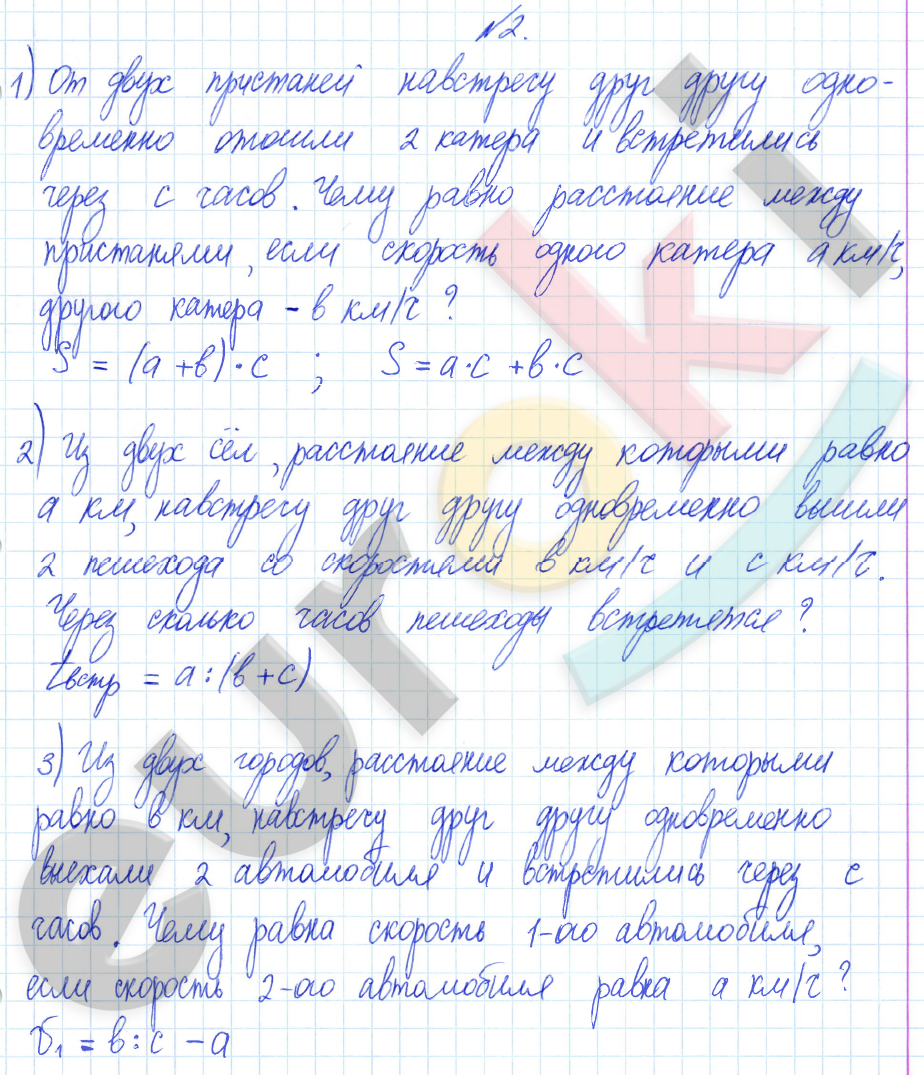 №2.
1) От двух пристаней навстречу друг другу одно-
временно отошли 2 катера и встретились
через с часов. Чему равно расстояние между
пристанями, если скорость одного катера а км/ч,
другого катера - в км/ч?
S = (а + в) · с ; S = а · с + в · с
2) Из двух сёл, расстояние между которыми равно
а км, навстречу друг другу одновременно вышли
2 пешехода со скоростями в км/ч и с км/ч.
Через сколько часов пешеходы встретятся?
tвстр = а : (в + с)
3) Из двух городов, расстояние между которыми
равно в км, навстречу друг другу одновременно
выехали 2 автомобиля и встретились через с
часов. Чему равна скорость 1-ого автомобиля,
если скорость 2-ого автомобиля равна а км/ч?
v₁ = в : с - а
euroki